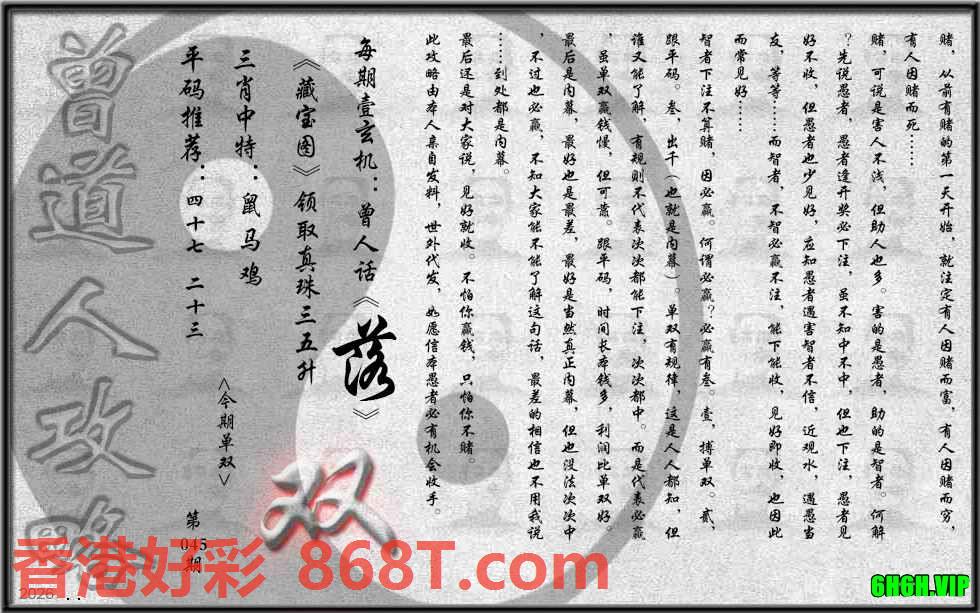 赌，从前有赌的第一天开始，就注定有人因赌而富，有人因赌而穷，
有人因赌而死……
赌，可说是害人不浅，但助人也多。害的是愚者，助的是智者。何解
？先说愚者，愚者逢开奖必下注，虽不知中不中，但也下注，愚者见
好不收，但愚者也少见好，应知愚者遇害智者不信，近观水，遇愚当
友，等等……而智者，不智必赢不注，能下能收，见好即收，也因此
而常见好……
智者下注不算赌，因必赢。何谓必赢？必赢有叁。壹，搏单双。贰，
跟平码。叁，出千（也就是内幕）。单双有规律，这是人人都知，但
谁又能了解，有规则不代表次次都能下注，次次都中。而是代表必赢
，虽单双赢钱慢，但可蓄。跟平码，时间长本钱多，利润比单双好。
最后是内幕，最好也是最差，最好是当然真正内幕，但也没法次次中
，不过也必赢，不知大家能不能了解这句话，最差的相信也不用我说
……到处都是内幕。
最后还是对大家说，见好就收。不怕你赢钱，只怕你不赌。
此攻略由本人亲自发料，世外代发，如愿信本愚者必有机会收手。
每期壹玄机：曾人话《落》
《藏宝图》领取真珠三五升
三肖中特：鼠马鸡
平码推荐：四十七 二十三
<今期单双>
双
第
045
期
曾道人攻略
香港好彩 868T.com
2026...
6H6H.VIP